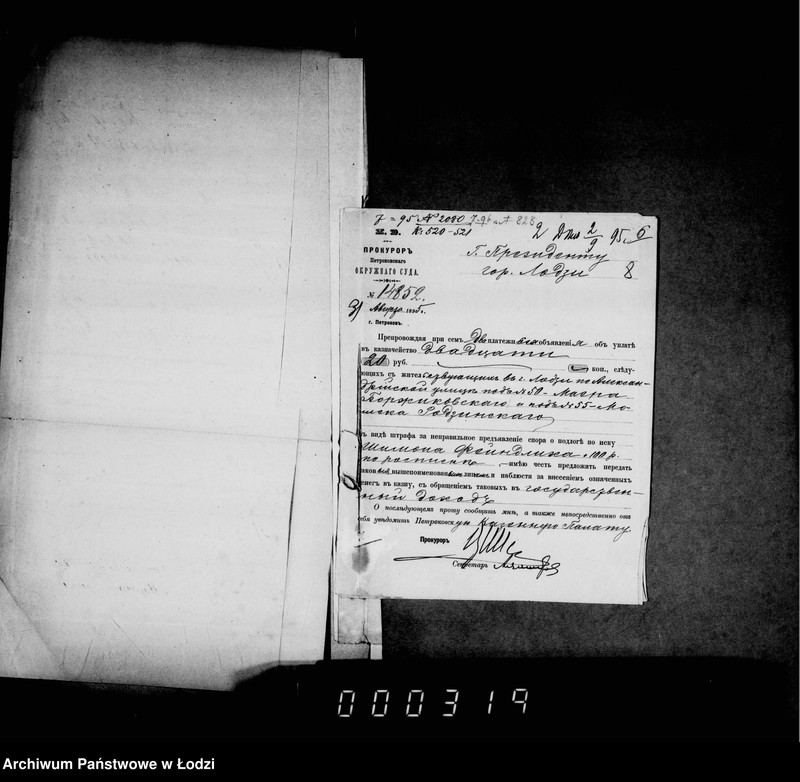 J = 95 № 2080
М. Ю. № 520-521
2 Дпо 2/9 95 6
ПРОКУРОРЪ
Петроковскаго
ОКРУЖНАГО СУДА.
Г. Президенту
гор. Лодзи 8
№ 14852.
31 Августа 1895 г.
г. Петроковъ.
Препровождая при семъ два платежныя объявленія объ уплатѣ
въ казначейство двадцати
(20) руб. коп., слѣду-
ющихъ съ жительствующихъ въ г. Лодзи по Алексан-
дрійской улицѣ подъ № 50 - Маера
Боржиковскаго и подъ № 55 - Мо-
шка Гродзинскаго
въ видѣ штрафа за неправильное предъявленіе спора о подлогѣ по иску
Шимона Фейндлиха о 100 р.
по роспискѣ, имѣю честь предложить передать
таковыя вышепоименованнымъ лицамъ и наблюсти за внесеніемъ означенныхъ
денегъ въ казну, съ обращеніемъ таковыхъ въ государствен-
ный доходъ
О послѣдующемъ прошу сообщить мнѣ, а также непосредственно отъ
себя увѣдомить Петроковскую Казенную Палату.
Прокуроръ
Секретарь
000319
Archiwum Państwowe w Łodzi